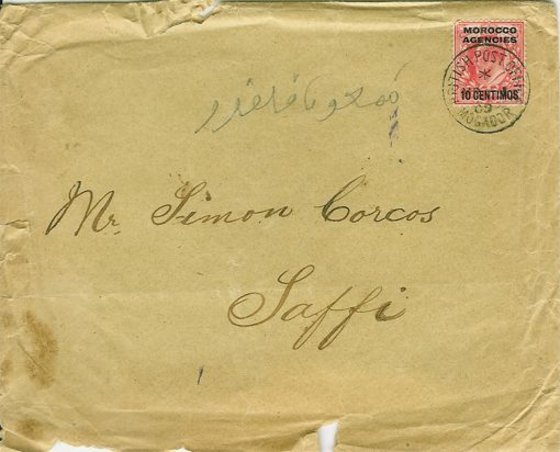 MOROCCO
AGENCIES
10 CENTIMOS
BRITISH POST OFFICE
MOGADOR
Mr. Simon Corcos
Saffi